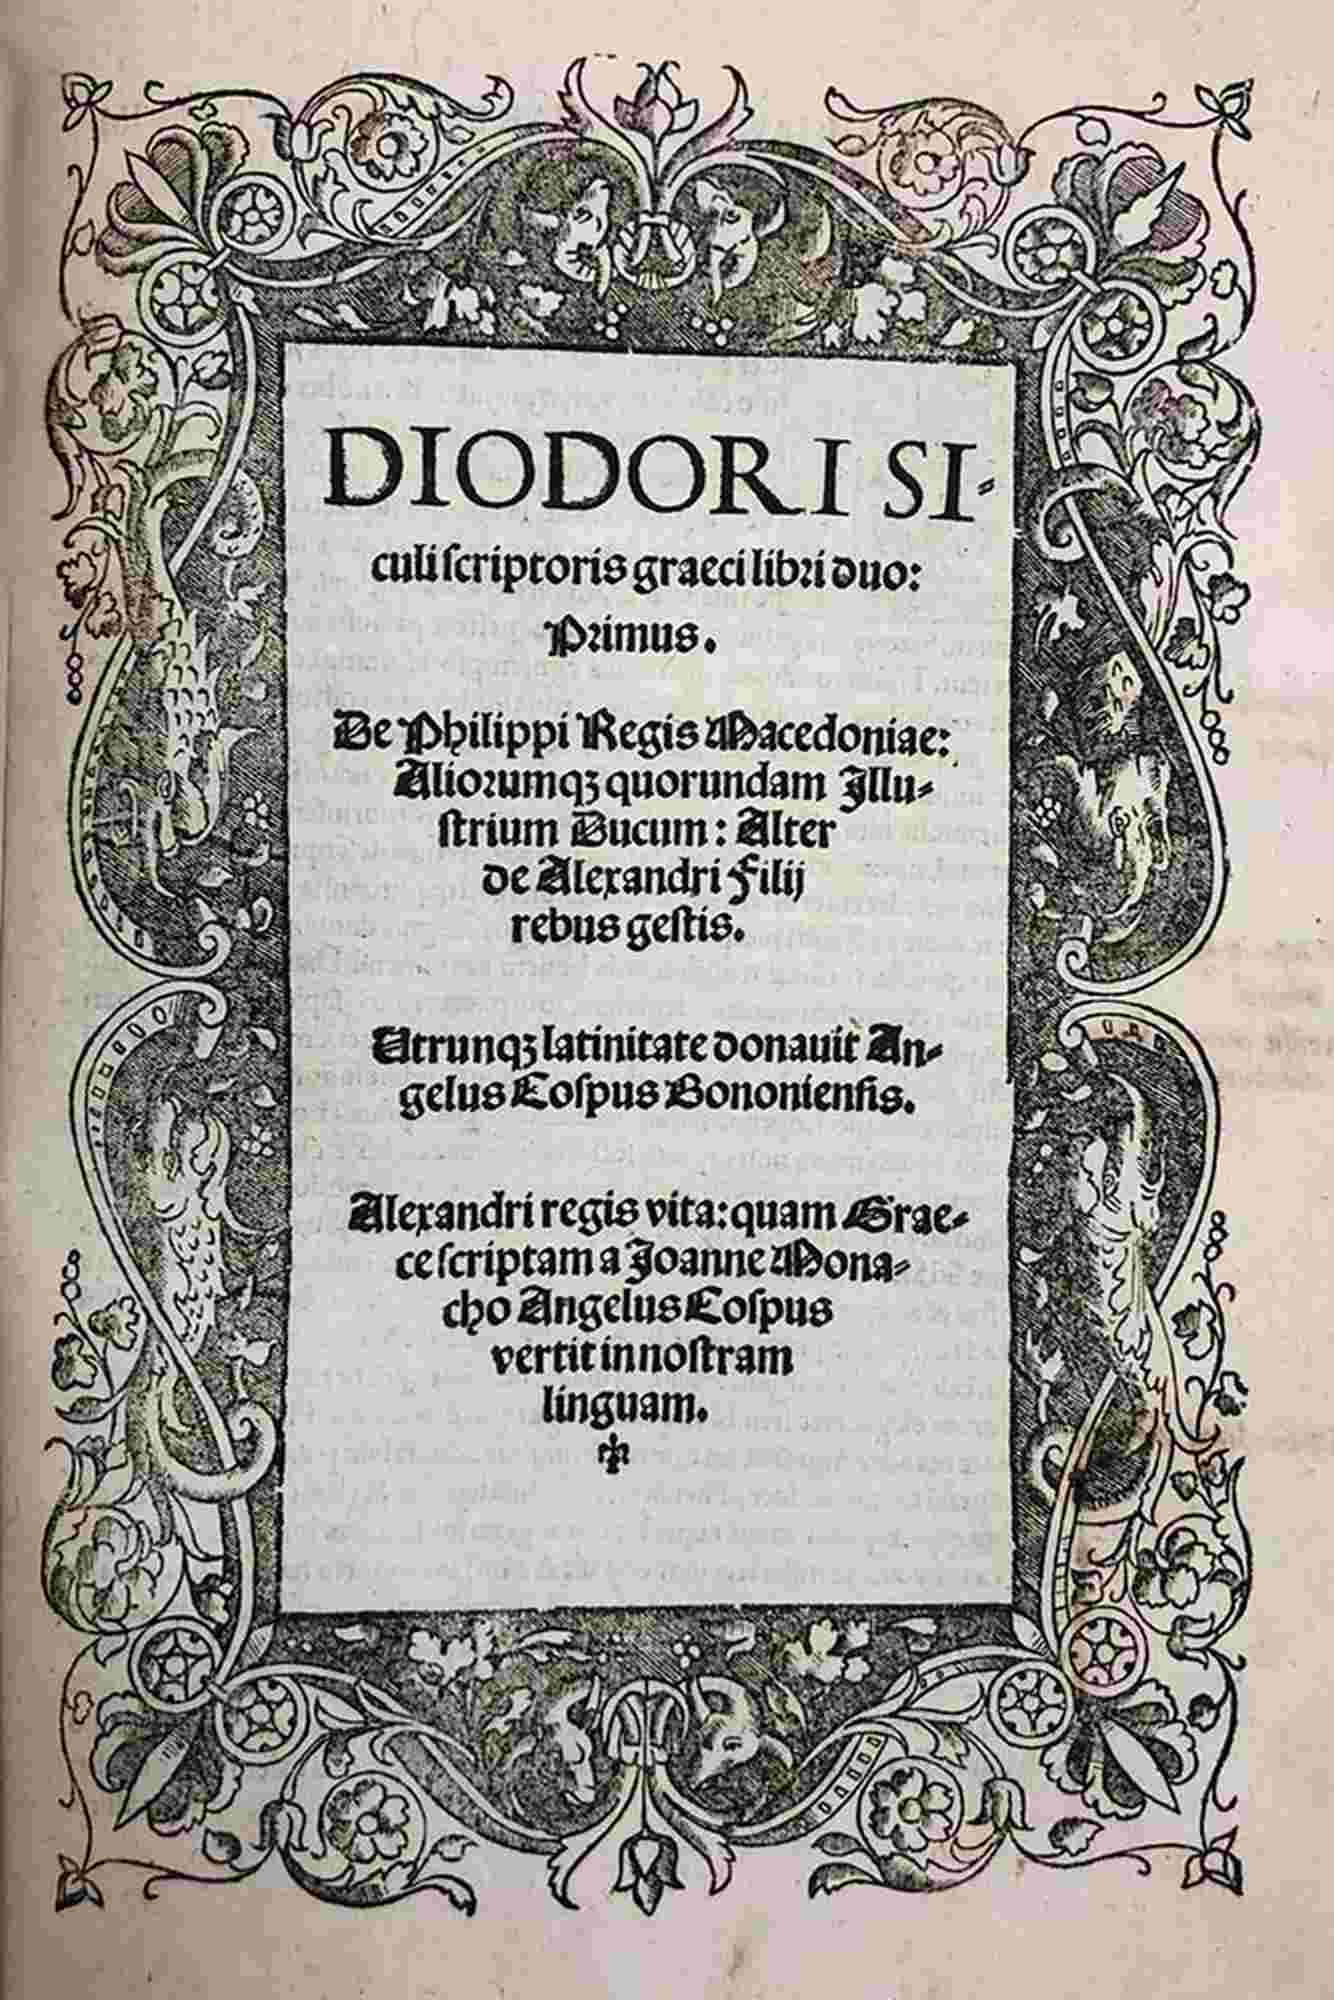 DIODORI SI-
culi scriptoris graeci libri duo:
Primus.
De Philippi Regis Macedoniae:
Aliorumqꝫ quorundam Illu-
strium Ducum: Alter
de Alexandri Filij
rebus gestis.
Utrunqꝫ latinitate donauit An-
gelus Cospus Bononiensis.
Alexandri regis vita: quam Grae-
ce scriptam a Joanne Mona-
cho Angelus Cospus
vertit in nostram
linguam.